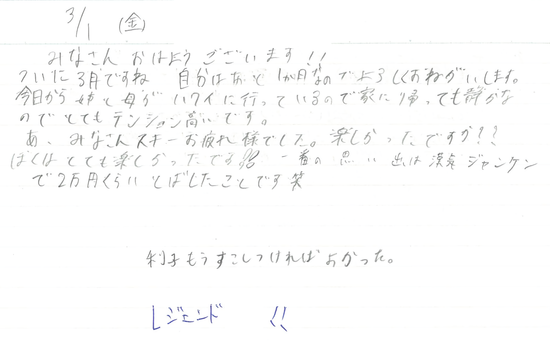 3/1 (金)
みなさん おはよう ございます!!
ついに3月ですね 自分はあと1か月なのでよろしくおねがいします。
今日から 姉と母が ハワイに行っているので家に帰っても静かな
のでとてもテンション高いです。
あ、みなさんスキーお疲れ様でした。楽しかったですか??
ぼくはとても楽しかったです 一番の思い出は 漢気 ジャンケン
で2万円くらいとばしたことです笑
利子もうすこしつければよかった。
レジェンド !!